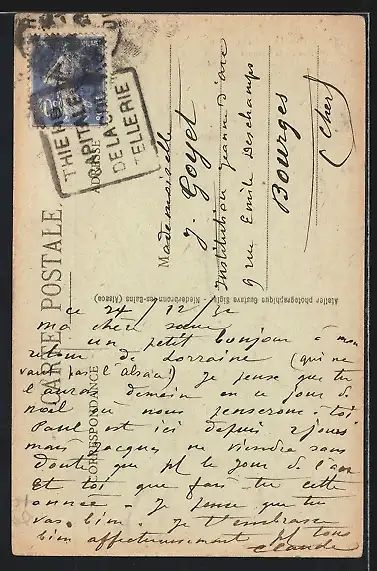 THIERS
CAPITALE
DE LA COU
TELLERIE
CARTE POSTALE
ADRESSE
CORRESPONDANCE
Atelier photographique Gustave Sigli - Niederbronn-les-Bains (Alsace)
Mademoiselle
J. Goyet
Institution Jeanne d'arc
9 rue Emile Deschamps
Bourges
(Cher)
ce 24/12/32
ma chère sœur
un petit bonjour à mon
retour de Lorraine (qui ne
vaut pas l'alsace!) Je pense que tu
l'auras demain en ce jour de
noël où nous penserons à toi
Paul est ici depuis 2 jours
mais Jacques ne viendra sans
doute que pr le jour de l'an
Et toi que fais tu cette
année. Je pense que tu
vas bien. Je t'embrasse
bien affectueusement pr tous
Claude